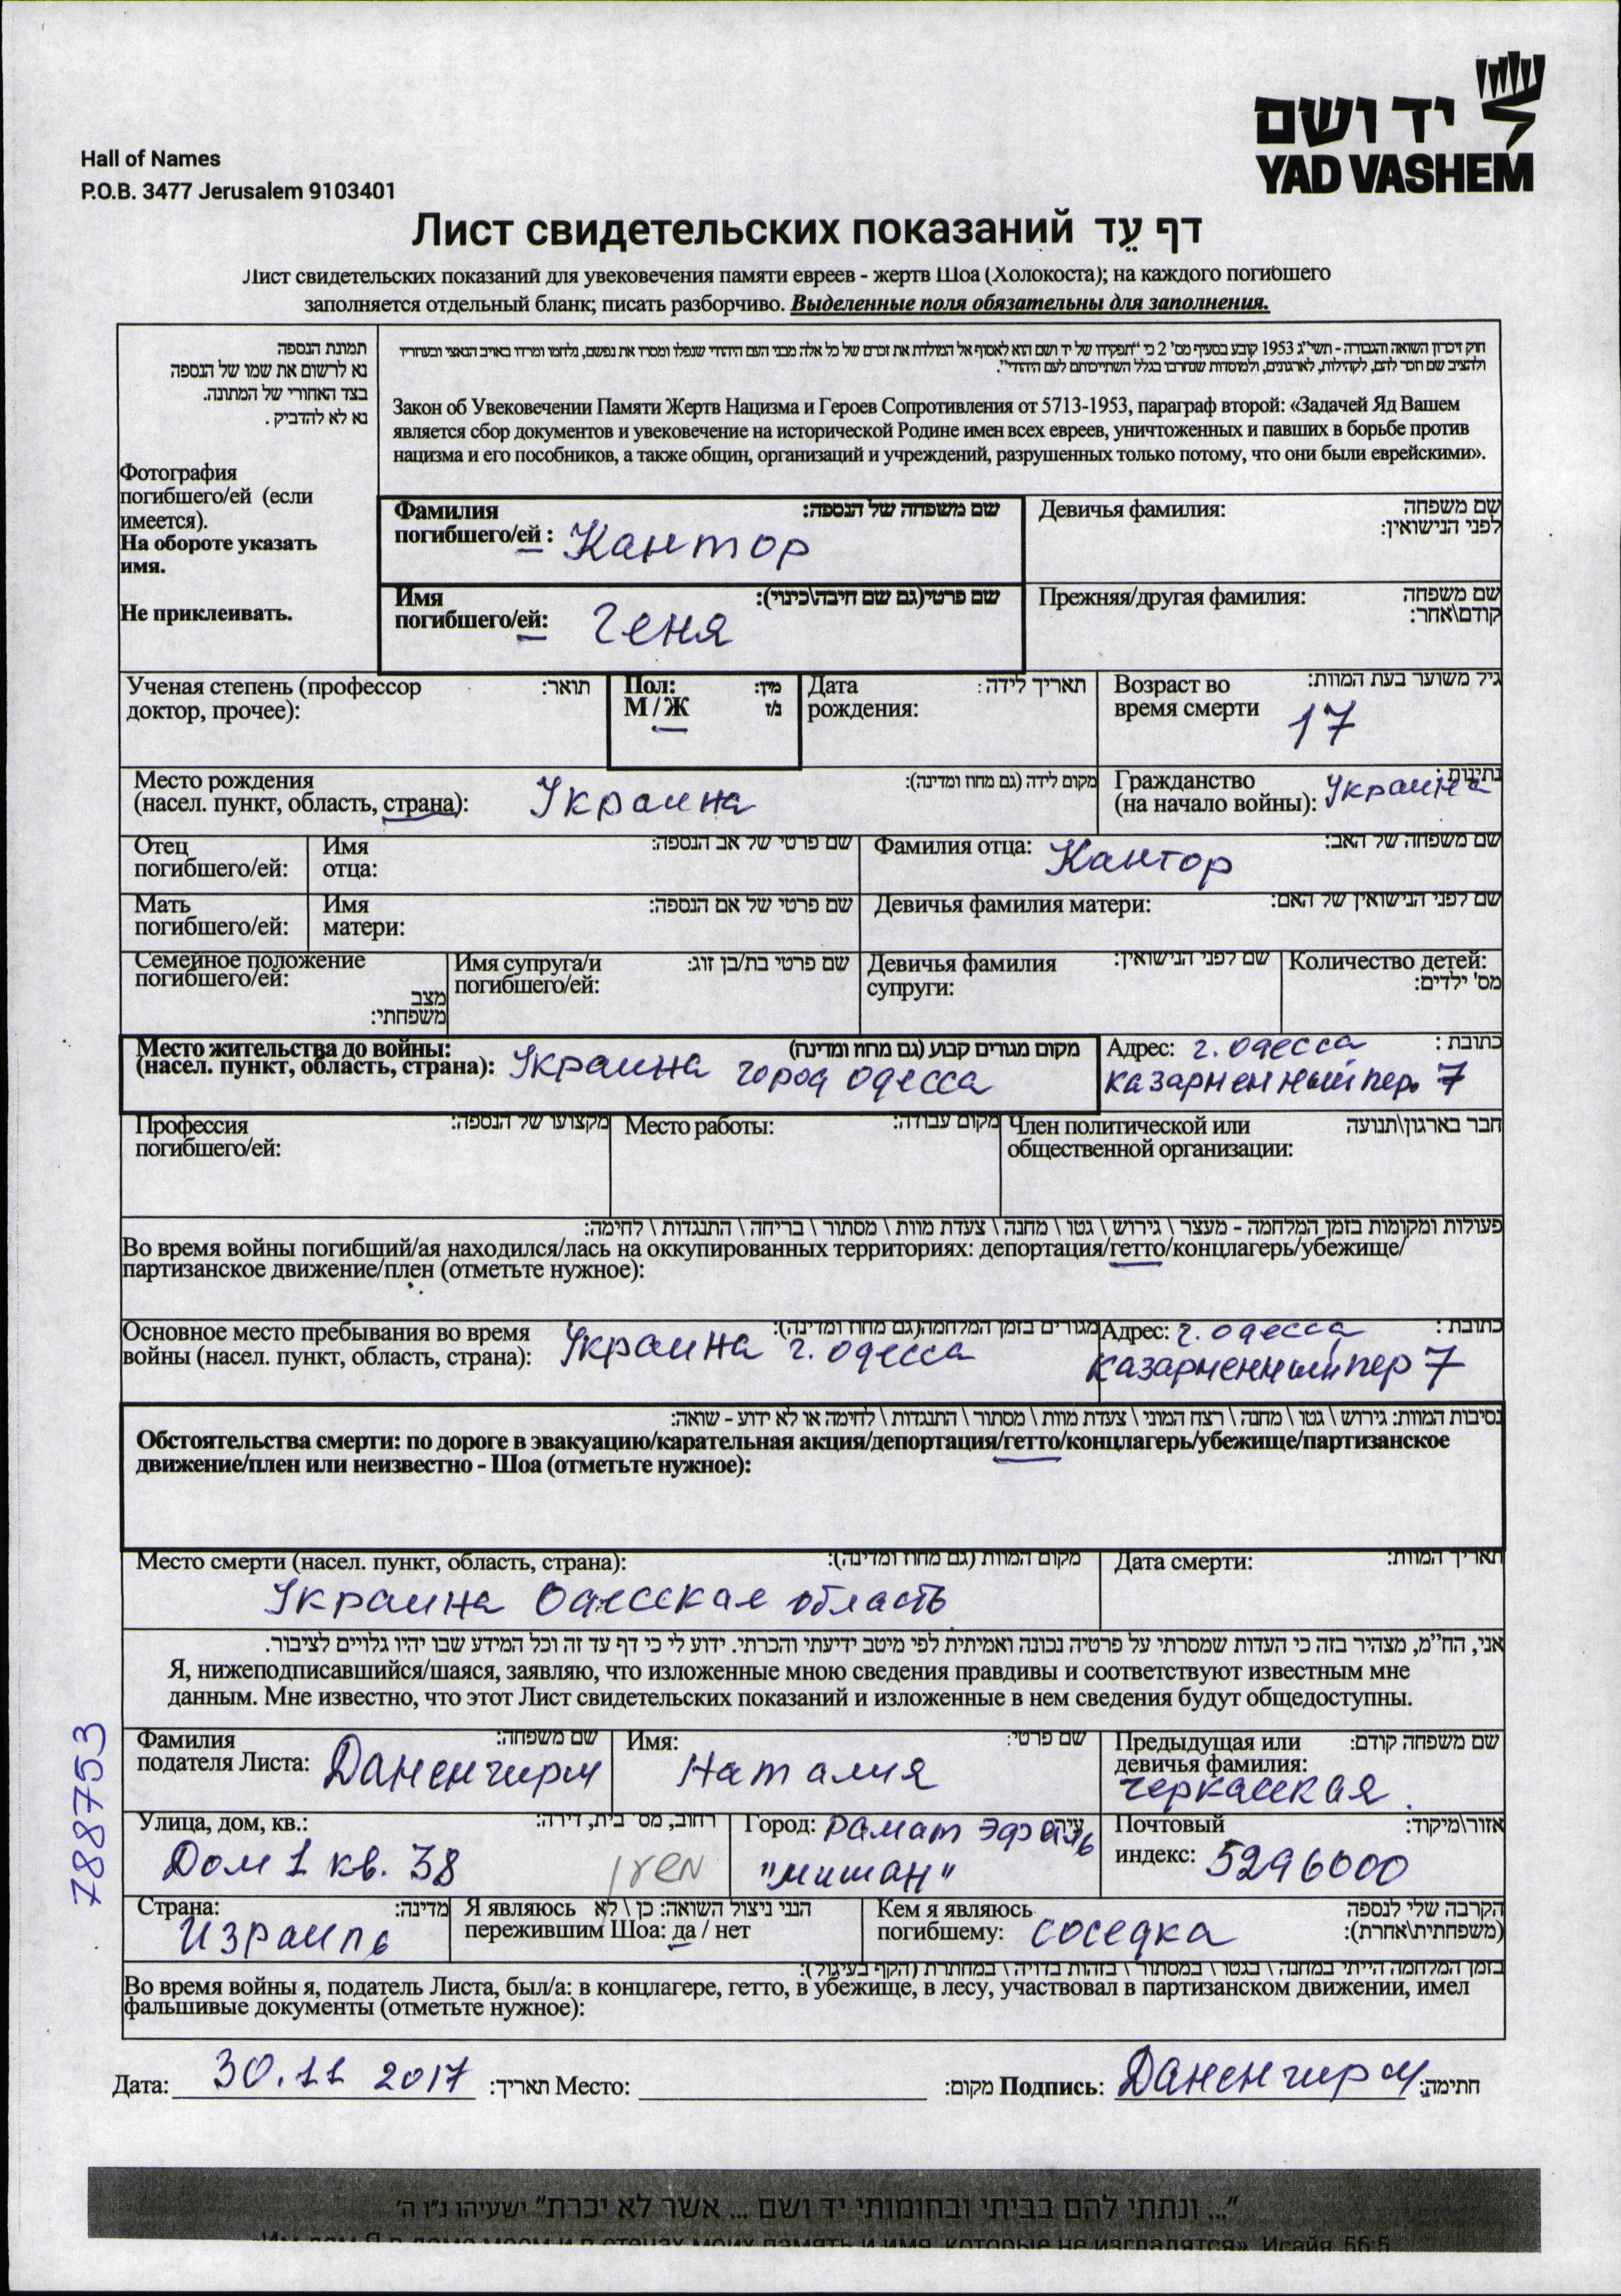 יד ושם
YAD VASHEM
Hall of Names
P.O.B. 3477 Jerusalem 9103401
Лист свидетельских показаний דף עֵד
Лист свидетельских показаний для увековечения памяти евреев - жертв Шоа (Холокоста); на каждого погибшего
заполняется отдельный бланк; писать разборчиво. Выделенные поля обязательны для заполнения.
תמונת הנספה
נא לרשום את שמו של הנספה
בצד האחורי של התמונה.
נא לא להדביק.
Фотография
погибшего/ей (если
имеется).
На обороте указать
имя.
Не приклеивать.
חוק זיכרון השואה והגבורה - תשי"ג 1953 קובע בסעיף מס' 2 כי "תפקידו של יד ושם הוא לאסוף אל המולדת את זכרם של כל אלה מבני העם היהודי שנפלו ומסרו את נפשם, נלחמו ומרדו באויב הנאצי ובעוזריו
ולהציב שם וזכר להם, לקהילות, לארגונים, ולמוסדות שנחרבו בגלל השתייכותם לעם היהודי".
Закон об Увековечении Памяти Жертв Нацизма и Героев Сопротивления от 5713-1953, параграф второй: «Задачей Яд Вашем
является сбор документов и увековечение на исторической Родине имен всех евреев, уничтоженных и павших в борьбе против
нацизма и его пособников, а также общин, организаций и учреждений, разрушенных только потому, что они были еврейскими».
Фамилия שם משפחה של הנספה:
погибшего/ей : Кантор
Девичья фамилия: שם משפחה
לפני הנישואין:
Имя שם פרטי(גם שם חיבה\כינוי):
погибшего/ей: Геня
Прежняя/другая фамилия: שם משפחה
קודם\אחר:
Ученая степень (профессор תואר:
доктор, прочее):
Пол: מין:
М / Ж ז/נ
Дата תאריך לידה:
рождения:
Возраст во גיל משוער בעת המוות:
время смерти 17
Место рождения מקום לידה (גם מחוז ומדינה):
(насел. пункт, область, страна): Украина
Гражданство נתינות:
(на начало войны): Украина
Отец
погибшего/ей:
Имя שם פרטי של אב הנספה:
отца:
Фамилия отца: Кантор שם משפחה של האב:
Мать
погибшего/ей:
Имя שם פרטי של אם הנספה:
матери:
Девичья фамилия матери: שם לפני הנישואין של האם:
Семейное положение
погибшего/ей:
מצב
משפחתי:
Имя супруга/и שם פרטי בת/בן זוג:
погибшего/ей:
Девичья фамилия שם לפני הנישואין:
супруги:
Количество детей:
מס' ילדים:
Место жительства до войны: מקום מגורים קבוע (גם מחוז ומדינה)
(насел. пункт, область, страна): Украина город Одесса
Адрес: г. Одесса כתובת:
казарменный пер. 7
Профессия מקצועו של הנספה:
погибшего/ей:
Место работы: מקום עבודה:
Член политической или חבר בארגון\תנועה
общественной организации:
פעולות ומקומות בזמן המלחמה - מעצר \ גירוש \ גטו \ מחנה \ צעדת מוות \ מסתור \ בריחה \ התנגדות \ לחימה:
Во время войны погибший/ая находился/лась на оккупированных территориях: депортация/гетто/концлагерь/убежище/
партизанское движение/плен (отметьте нужное):
Основное место пребывания во время מגורים בזמן המלחמה(גם מחוז ומדינה):
войны (насел. пункт, область, страна): Украина г. Одесса
Адрес: г. Одесса כתובת:
казарменный пер 7
נסיבות המוות: גירוש \ גטו \ מחנה \ רצח המוני \ צעדת מוות \ מסתור \ התנגדות \ לחימה או לא ידוע - שואה:
Обстоятельства смерти: по дороге в эвакуацию/карательная акция/депортация/гетто/концлагерь/убежище/партизанское
движение/плен или неизвестно - Шоа (отметьте нужное):
Место смерти (насел. пункт, область, страна): מקום המוות (גם מחוז ומדינה):
Украина Одесская область
Дата смерти: תאריך המוות:
אני, הח"מ, מצהיר בזה כי העדות שמסרתי על פרטיה נכונה ואמיתית לפי מיטב ידיעתי והכרתי. ידוע לי כי דף עד זה וכל המידע שבו יהיו גלויים לציבור.
Я, нижеподписавшийся/шаяся, заявляю, что изложенные мною сведения правдивы и соответствуют известным мне
данным. Мне известно, что этот Лист свидетельских показаний и изложенные в нем сведения будут общедоступны.
788753
Фамилия שם משפחה:
подателя Листа: Даненгирш
Имя: שם פרטי:
Наталия
Предыдущая или שם משפחה קודם:
девичья фамилия:
Черкасская
Улица, дом, кв.: רחוב, מס' בית, דירה:
Дом 1 кв. 38 משען
Город: Рамат Эфаль עיר:
"мишан"
Почтовый אזור\מיקוד:
индекс: 5296000
Страна: מדינה:
Израиль
Я являюсь הנני ניצול השואה: כן \ לא
пережившим Шоа: да / нет
Кем я являюсь הקרבה שלי לנספה
погибшему: соседка (משפחתית\אחרת):
בזמן המלחמה הייתי במחנה \ בגטו \ במסתור \ בזהות בדויה \ במחתרת (הקף בעיגול):
Во время войны я, податель Листа, был/а: в концлагере, гетто, в убежище, в лесу, участвовал в партизанском движении, имел
фальшивые документы (отметьте нужное):
Дата: 30.11 2017 תאריך: Место: מקום: Подпись: Даненгирш חתימה:
"... ונתתי להם בביתי ובחומותי יד ושם ... אשר לא יכרת" ישעיהו נ"ו ה'
«Им дам Я в доме моем и в стенах моих память и имя, которые не изгладятся». Исайя, 56:5